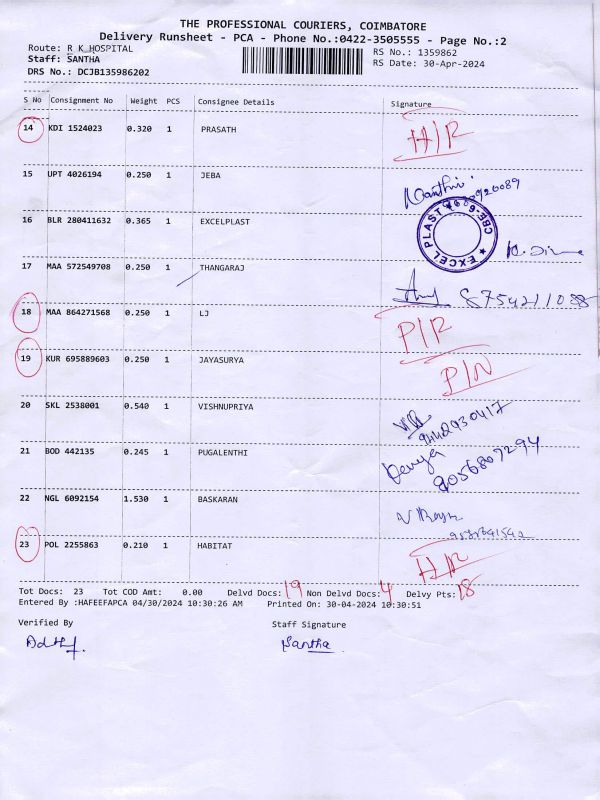 THE PROFESSIONAL COURIERS, COIMBATORE
Delivery Runsheet - PCA - Phone No.:0422-3505555 - Page No.:2
Route: R K HOSPITAL RS No.: 1359862
Staff: SANTHA RS Date: 30-Apr-2024
DRS No.: DCJB135986202
S No Consignment No Weight PCS Consignee Details Signature
14 KDI 1524023 0.320 1 PRASATH H/R
15 UPT 4026194 0.250 1 JEBA
16 BLR 280411632 0.365 1 EXCELPLAST EXCEL PLAST CBE-6
17 MAA 572549708 0.250 1 THANGARAJ
18 MAA 864271568 0.250 1 LJ P/R
19 KUR 695889603 0.250 1 JAYASURYA P/N
20 SKL 2538001 0.540 1 VISHNUPRIYA 9442930417
21 BOD 442135 0.245 1 PUGALENTHI Denya 8056807294
22 NGL 6092154 1.530 1 BASKARAN
23 POL 2255863 0.210 1 HABITAT H/R
Tot Docs: 23 Tot COD Amt: 0.00 Delvd Docs: 19 Non Delvd Docs: 4 Delvy Pts: 18
Entered By :HAFEEFAPCA 04/30/2024 10:30:26 AM Printed On: 30-04-2024 10:30:51
Verified By Staff Signature
Santha